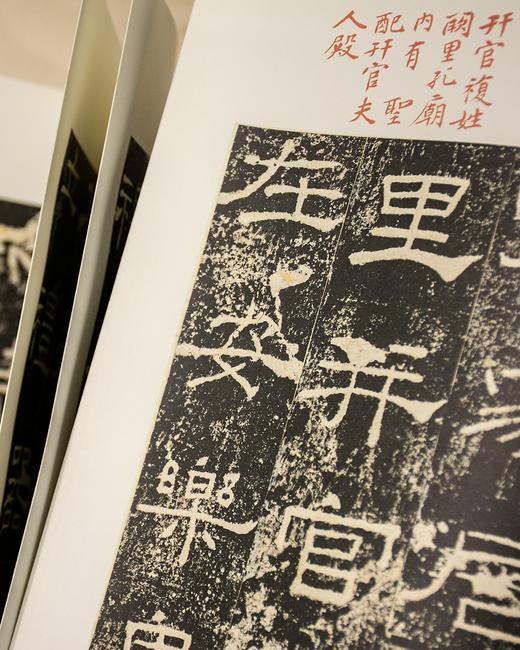 幵官複姓
闕里孔廟
内有聖
配幵官夫
人殿
居
里并官
在安樂里